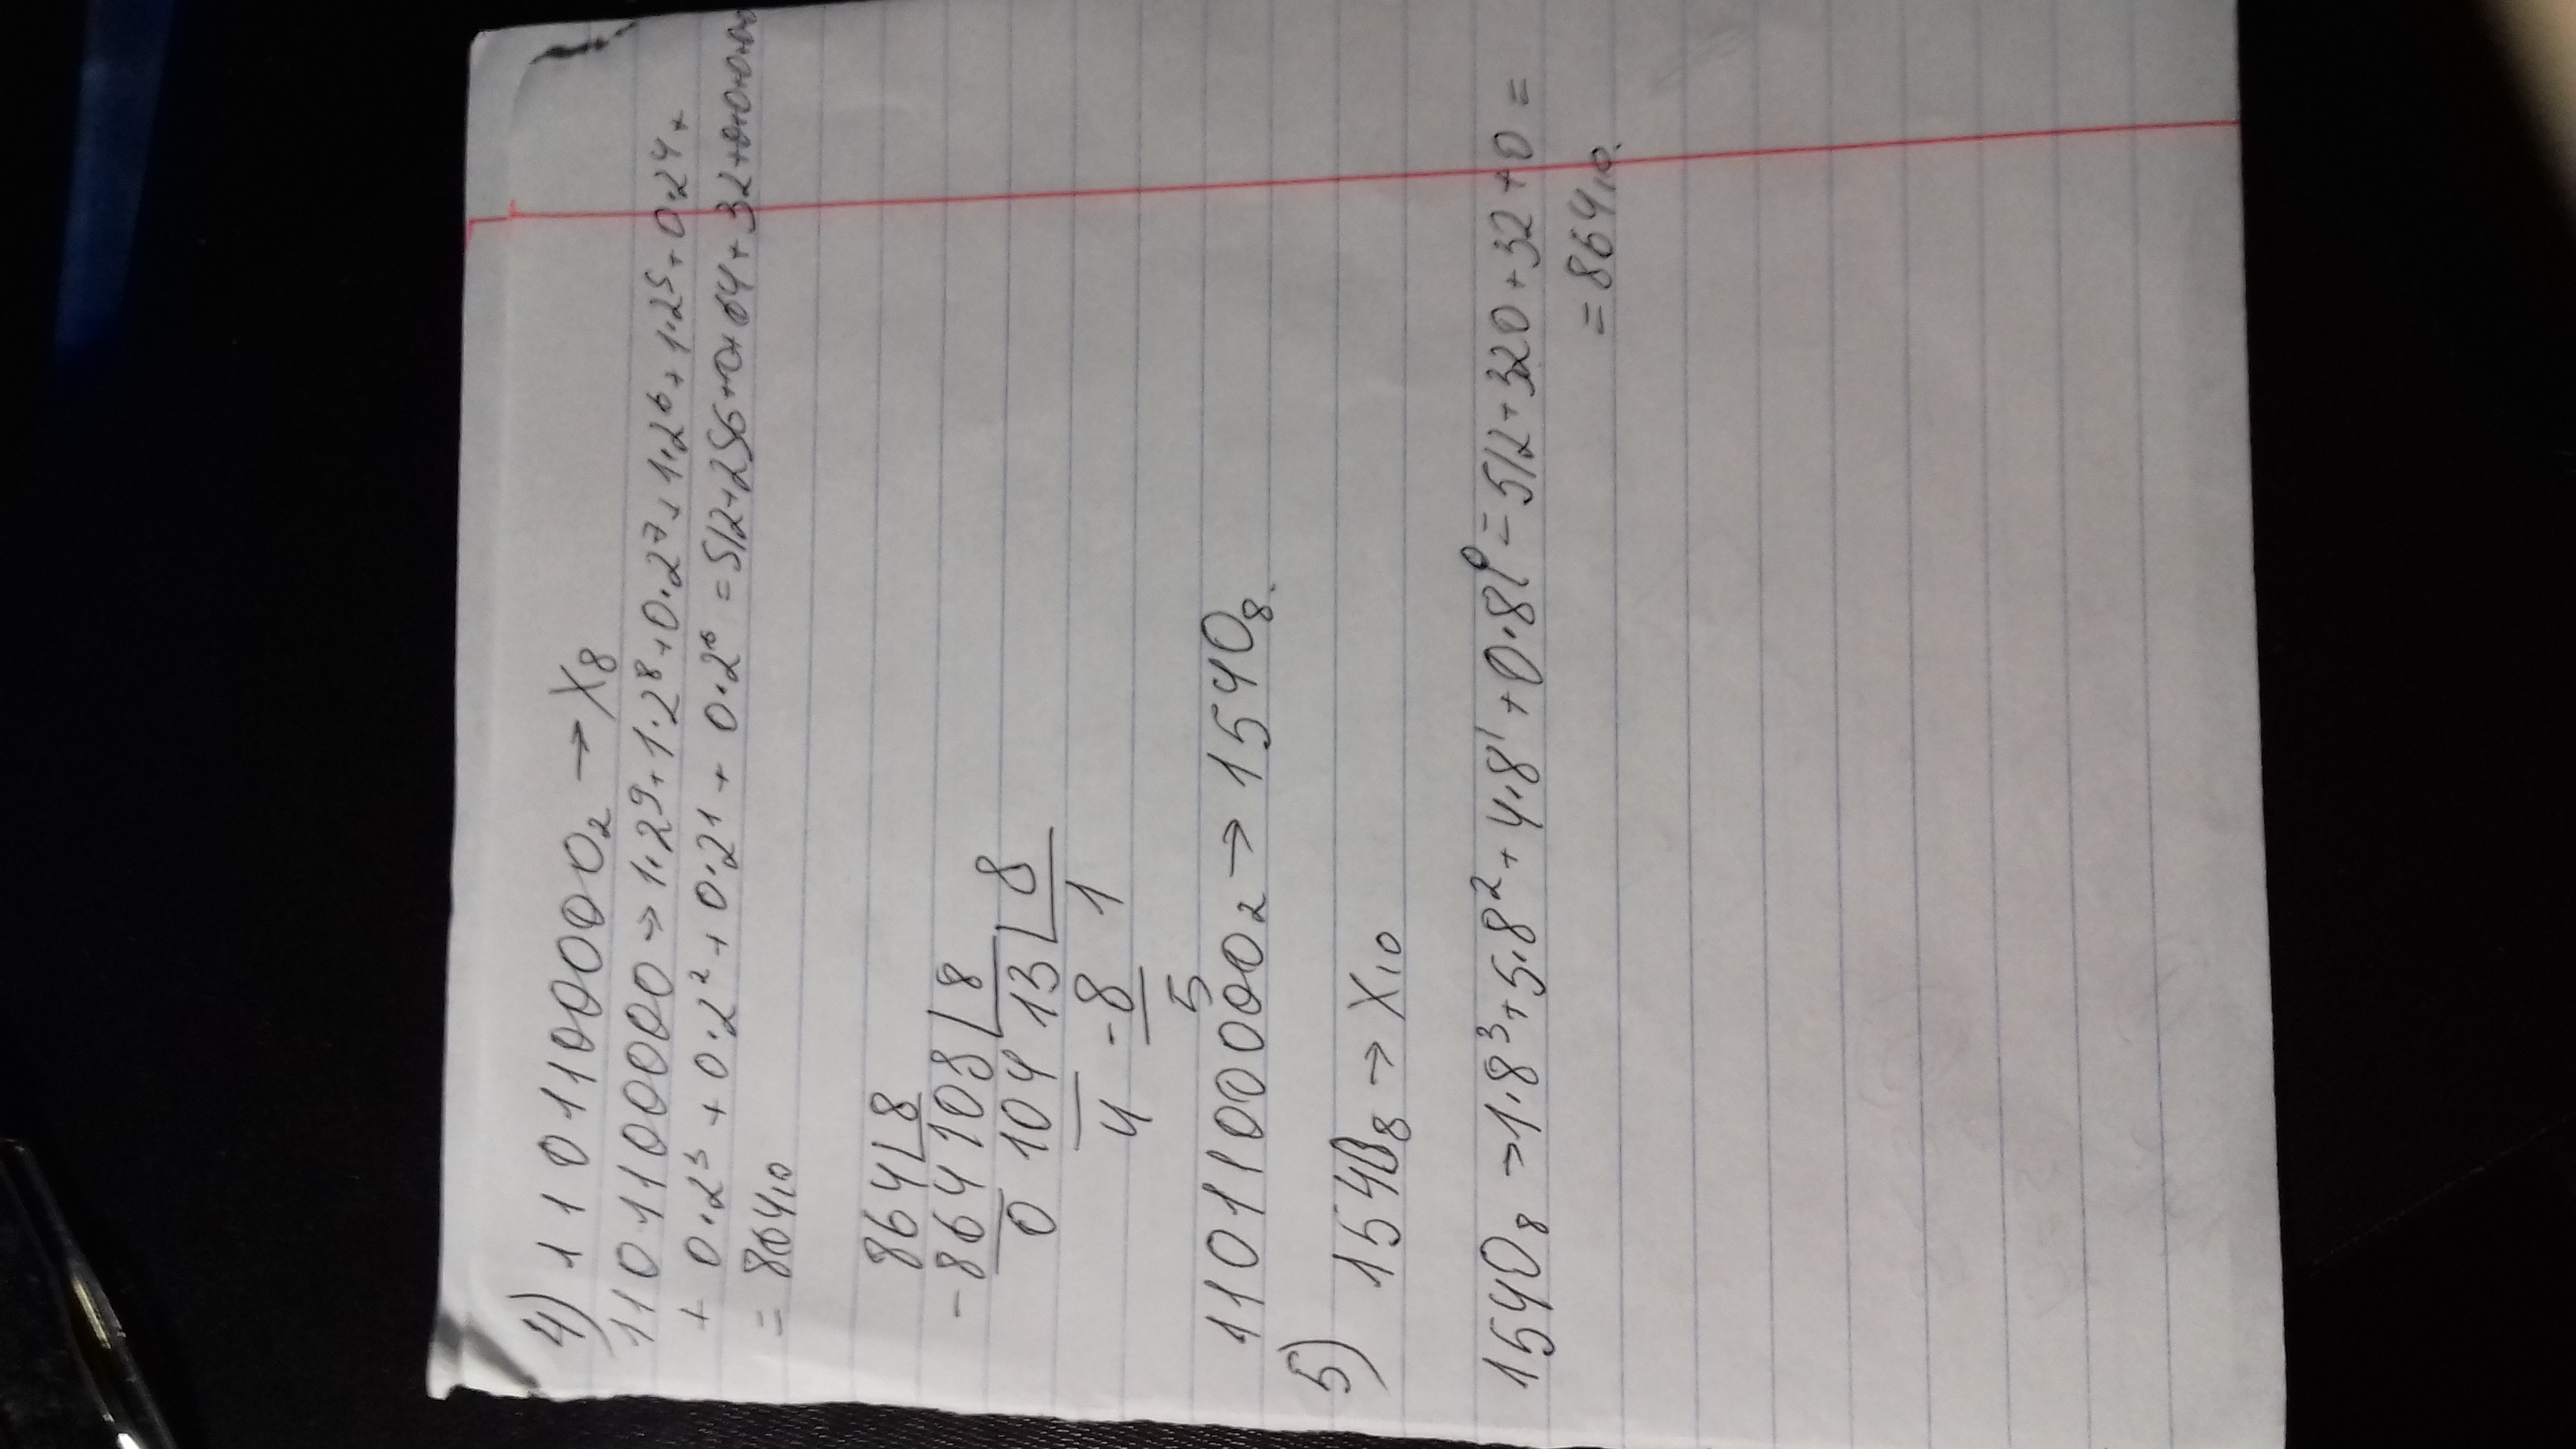 4) 1101100000₂ → X₈
1101100000 → 1·2⁹+1·2⁸+0·2⁷+1·2⁶+1·2⁵+0·2⁴+
+ 0·2³ + 0·2² + 0·2¹ + 0·2⁰ = 512+256+0+64+32+0+0+0+0+0
= 864₁₀
864 | 8
-864 108 | 8
0 104 13 | 8
4 -8 1
5
1101100000₂ → 1540₈.
5) 1540₈ → X₁₀
1540₈ → 1·8³+5·8²+4·8¹+0·8⁰=512+320+32+0=
= 864₁₀.